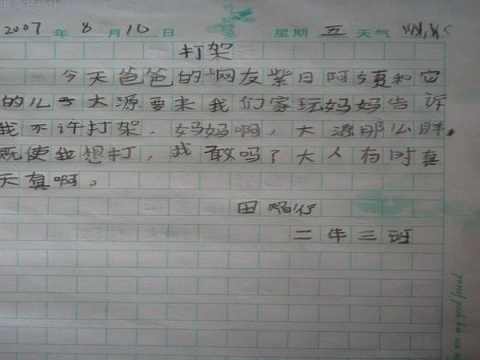 2007年8月10日 星期五 天气
打架
今天爸爸的网友紫日阿姨和它
的儿子大源要来我们家玩妈妈告诉
我不许打架，妈妈啊，大源那么胖，
既使我想打，我敢吗？大人有时真
天真啊。
田
二年三班
my good friend